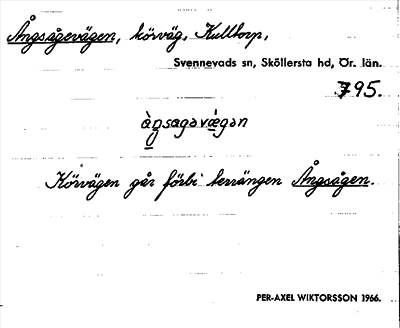 Ångsågevägen, körväg, Kulltorp,
Svennevads sn, Sköllersta hd, Ör. län.
795.
àŋsagəvǽgən
Körvägen går förbi terrängen Ångsågen.
PER-AXEL WIKTORSSON 1966.